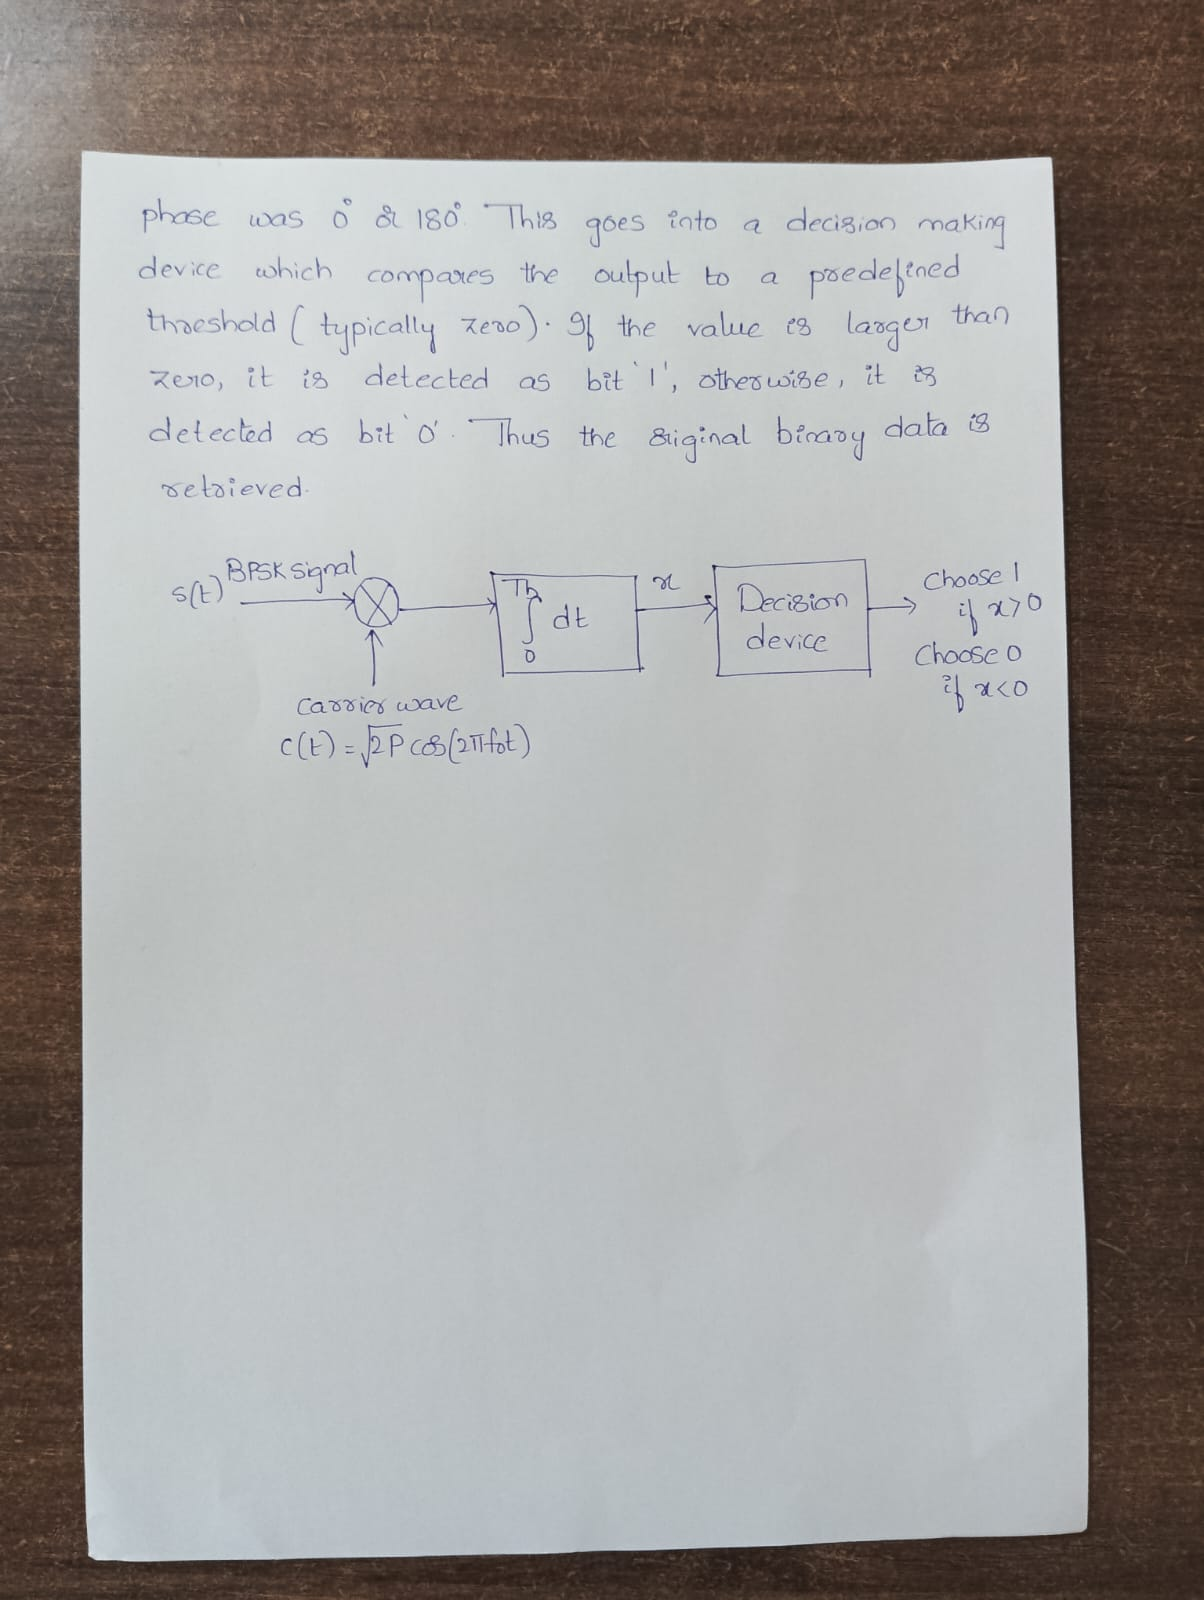 phase was 0° or 180°. This goes into a decision making
device which compares the output to a predefined
threshold ( typically zero). If the value is larger than
zero, it is detected as bit '1', otherwise, it is
detected as bit '0'. Thus the original binary data is
retrieved.
s(t) BPSK signal
Tb
∫ dt
0
x
Decision
device
Choose 1
if x>0
Choose 0
if x<0
Carrier wave
c(t) = √2P cos(2πfot)